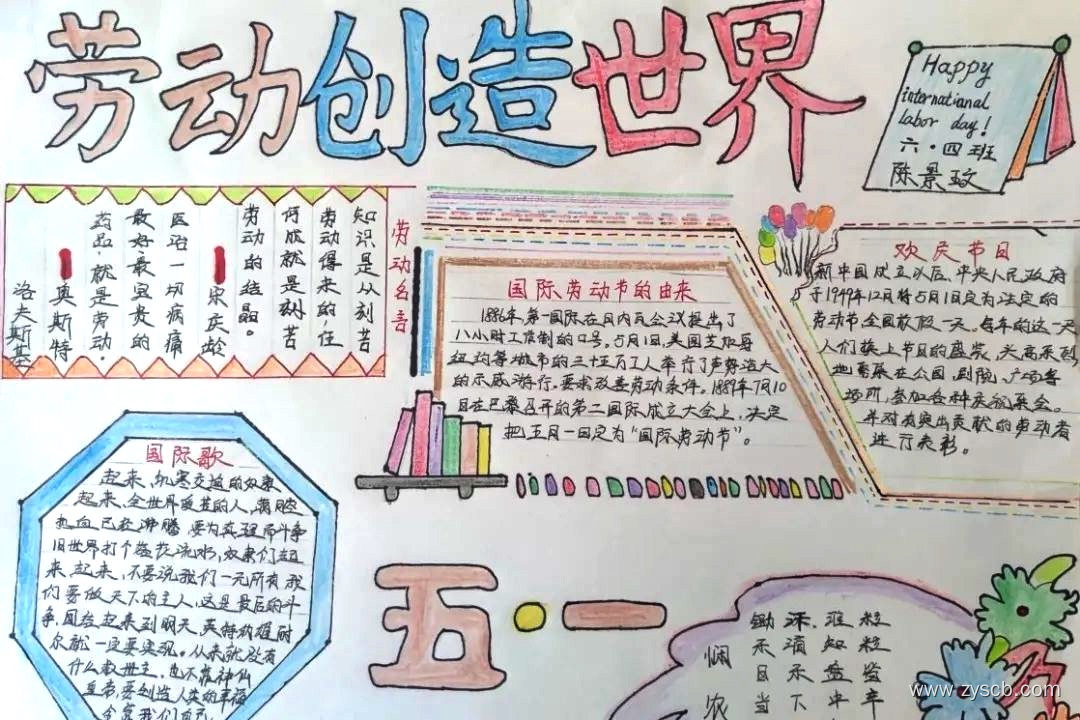 劳动创造世界
Happy
international
labor day!
六·四班
陈景玟
劳动名言
知识是从刻苦
劳动得来的，任
何成就是刻苦
劳动的结晶。
——宋庆龄
医治一切病痛
最好最宝贵的
药品，就是劳动。
——奥斯特
洛夫斯基
国际劳动节的由来
1886年，第一国际在日内瓦会议提出了
八小时工作制的口号，5月1日，美国芝加哥
纽约等城市的三十五万工人举行了声势浩大
的示威游行，要求改善劳动条件。1889年7月10
日在巴黎召开的第二国际成立大会上，决定
把五月一日定为“国际劳动节”。
欢庆节日
新中国成立以后，中央人民政府
于1949年12月将5月1日定为法定的
劳动节，全国放假一天。每年的这一天
人们换上节日的盛装，兴高采烈
地聚集在公园、剧院、广场等
场所，参加各种庆祝集会。
并对有突出贡献的劳动者
进行表彰。
国际歌
起来，饥寒交迫的奴隶
起来，全世界受苦的人，满腔
热血已经沸腾，要为真理而斗争
旧世界打个落花流水，奴隶们起
来，起来，不要说我们一无所有，我
们要做天下的主人，这是最后的斗
争，团结起来到明天，英特纳雄耐
尔就一定要实现。从来就没有
什么救世主，也不靠神仙
皇帝，要创造人类的幸福
全靠我们自己
五·一
悯
农
锄禾日当
汗滴禾下
谁知盘中
粒粒皆辛
www.zyscb.com